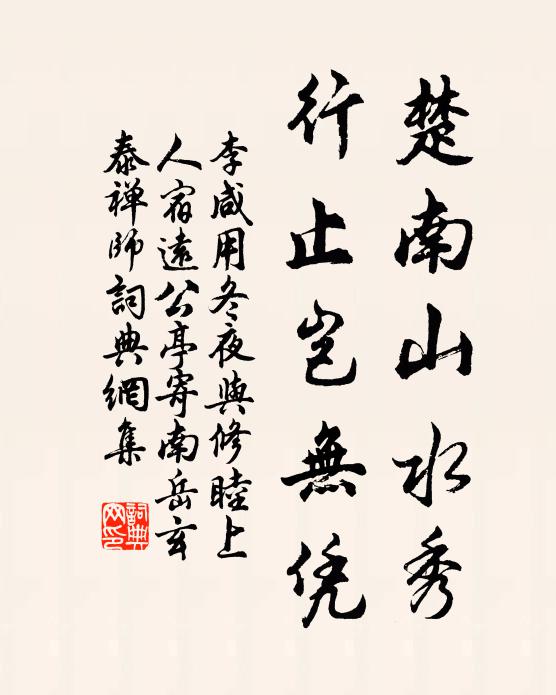 楚南山水秀
行止岂無凭
李咸用冬夜與修睦上
人宿遠公亭寄南岳玄
泰禅師詞典網集
詞典
网印